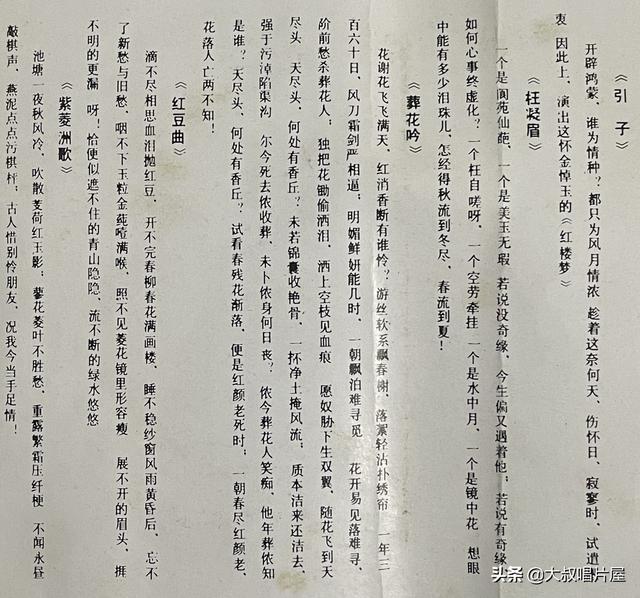 《引子》
开辟鸿蒙、谁为情种？都只为风月情浓 趁着这奈何天、伤怀日、寂寥时、试遣愚
衷 因此上、演出这怀金悼玉的《红楼梦》
《枉凝眉》
一个是阆苑仙葩、一个是美玉无瑕 若说没奇缘、今生偏又遇着他；若说有奇缘、
如何心事终虚化？一个枉自嗟呀、一个空劳牵挂 一个是水中月、一个是镜中花 想眼
中能有多少泪珠儿、怎经得秋流到冬尽、春流到夏！
《葬花吟》
花谢花飞飞满天、红消香断有谁怜？游丝软系飘春榭、落絮轻沾扑绣帘 一年三
百六十日、风刀霜剑严相逼；明媚鲜妍能几时、一朝飘泊难寻觅 花开易见落难寻、
阶前愁杀葬花人；独把花锄偷洒泪、洒上空枝见血痕 愿奴胁下生双翼、随花飞到天
尽头 天尽头、何处有香丘？未若锦囊收艳骨、一抔净土掩风流；质本洁来还洁去、
强于污淖陷渠沟 尔今死去侬收葬、未卜侬身何日丧？侬今葬花人笑痴、他年葬侬知
是谁？天尽头、何处有香丘？试看春残花渐落、便是红颜老死时；一朝春尽红颜老、
花落人亡两不知！
《红豆曲》
滴不尽相思血泪抛红豆、开不完春柳春花满画楼、睡不稳纱窗风雨黄昏后、忘不
了新愁与旧愁、咽不下玉粒金莼噎满喉、照不见菱花镜里形容瘦 展不开的眉头、捱
不明的更漏 呀！恰便似遮不住的青山隐隐、流不断的绿水悠悠
《紫菱洲歌》
池塘一夜秋风冷、吹散芰荷红玉影；蓼花菱叶不胜愁、重露繁霜压纤梗 不闻永昼
敲棋声、燕泥点点污棋枰；古人惜别怜朋友、况我今当手足情！
头条 @大叔唱片屋